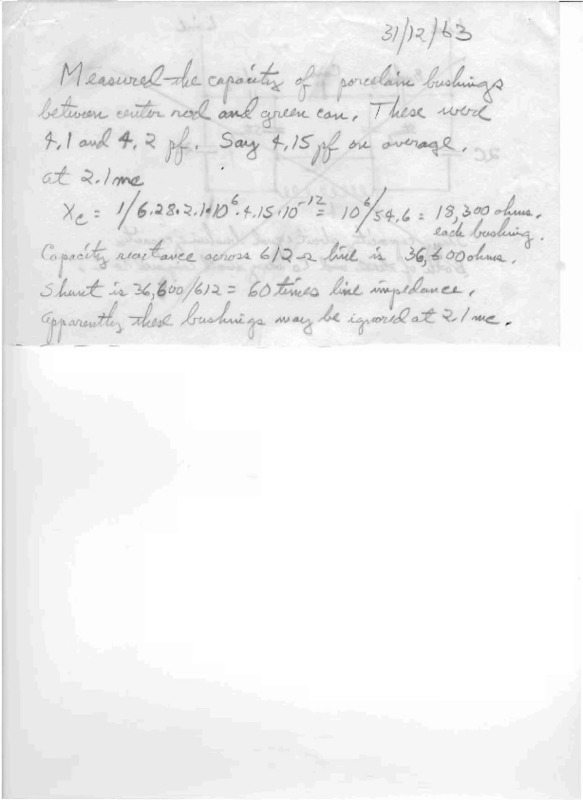 31/12/63
Measured the capacity of porcelain bushings
between center rod and green can. These were
4.1 and 4.2 pf. Say 4.15 pf on average.
at 2.1 mc
Xc = 1/6.28·2.1·10⁶·4.15·10⁻¹² = 10⁶/54.6 = 18,300 ohms.
each bushing.
Capacity reactance across 612 Ω line is 36,600 ohms.
Shunt is 36,600/612 = 60 times line impedance.
Apparently these bushings may be ignored at 2.1 mc.
2C